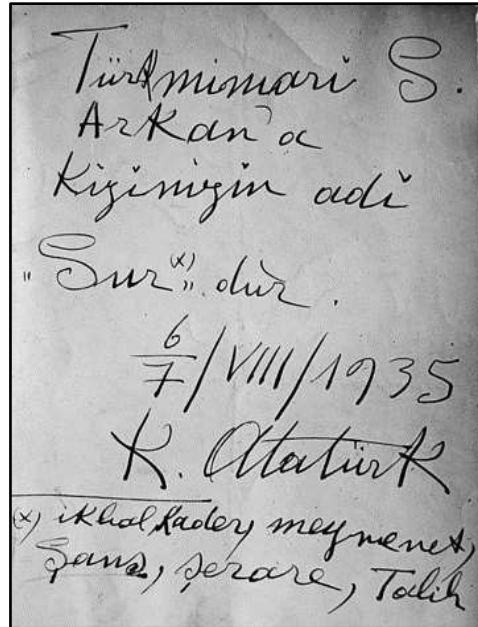 Türk mimari S.
Arkan'a
Kizinizin adi
"Sur (x)" dur.
6/7/VIII/1935
K. Atatürk
(x) ikbal, kader, meymenet,
Şans, şerare, Talih